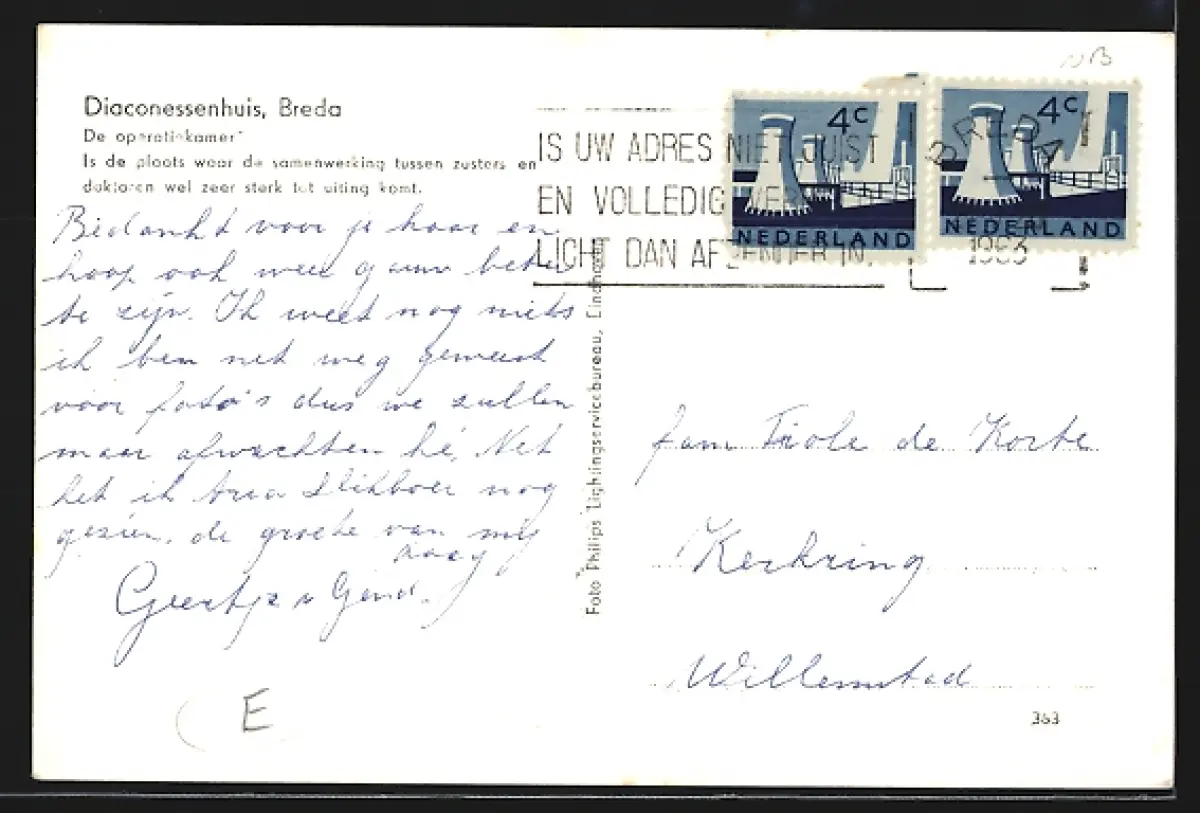 Diaconessenhuis, Breda
De operatiekamer
Is de plaats waar de samenwerking tussen zusters en
doktoren wel zeer sterk tot uiting komt.
Bedankt voor je kaar en
hoop ook weer gauw beter
te zijn. Ik weet nog niets
ik ben net weg geweest
vóór foto's dus we zullen
maar afwachten hé. Net
het ik nog
gezien. de groete van mij
Geertje
E
Foto "Philips" Lichtingservicebureau, Eindhoven
IS UW ADRES NIET JUIST
EN VOLLEDIG
LICHT DAN AFZENDER IN.
BREDA
1963
4c
NEDERLAND
4c
NEDERLAND
NB
fam Triole de Korte
Kerkring
Willemstad
363